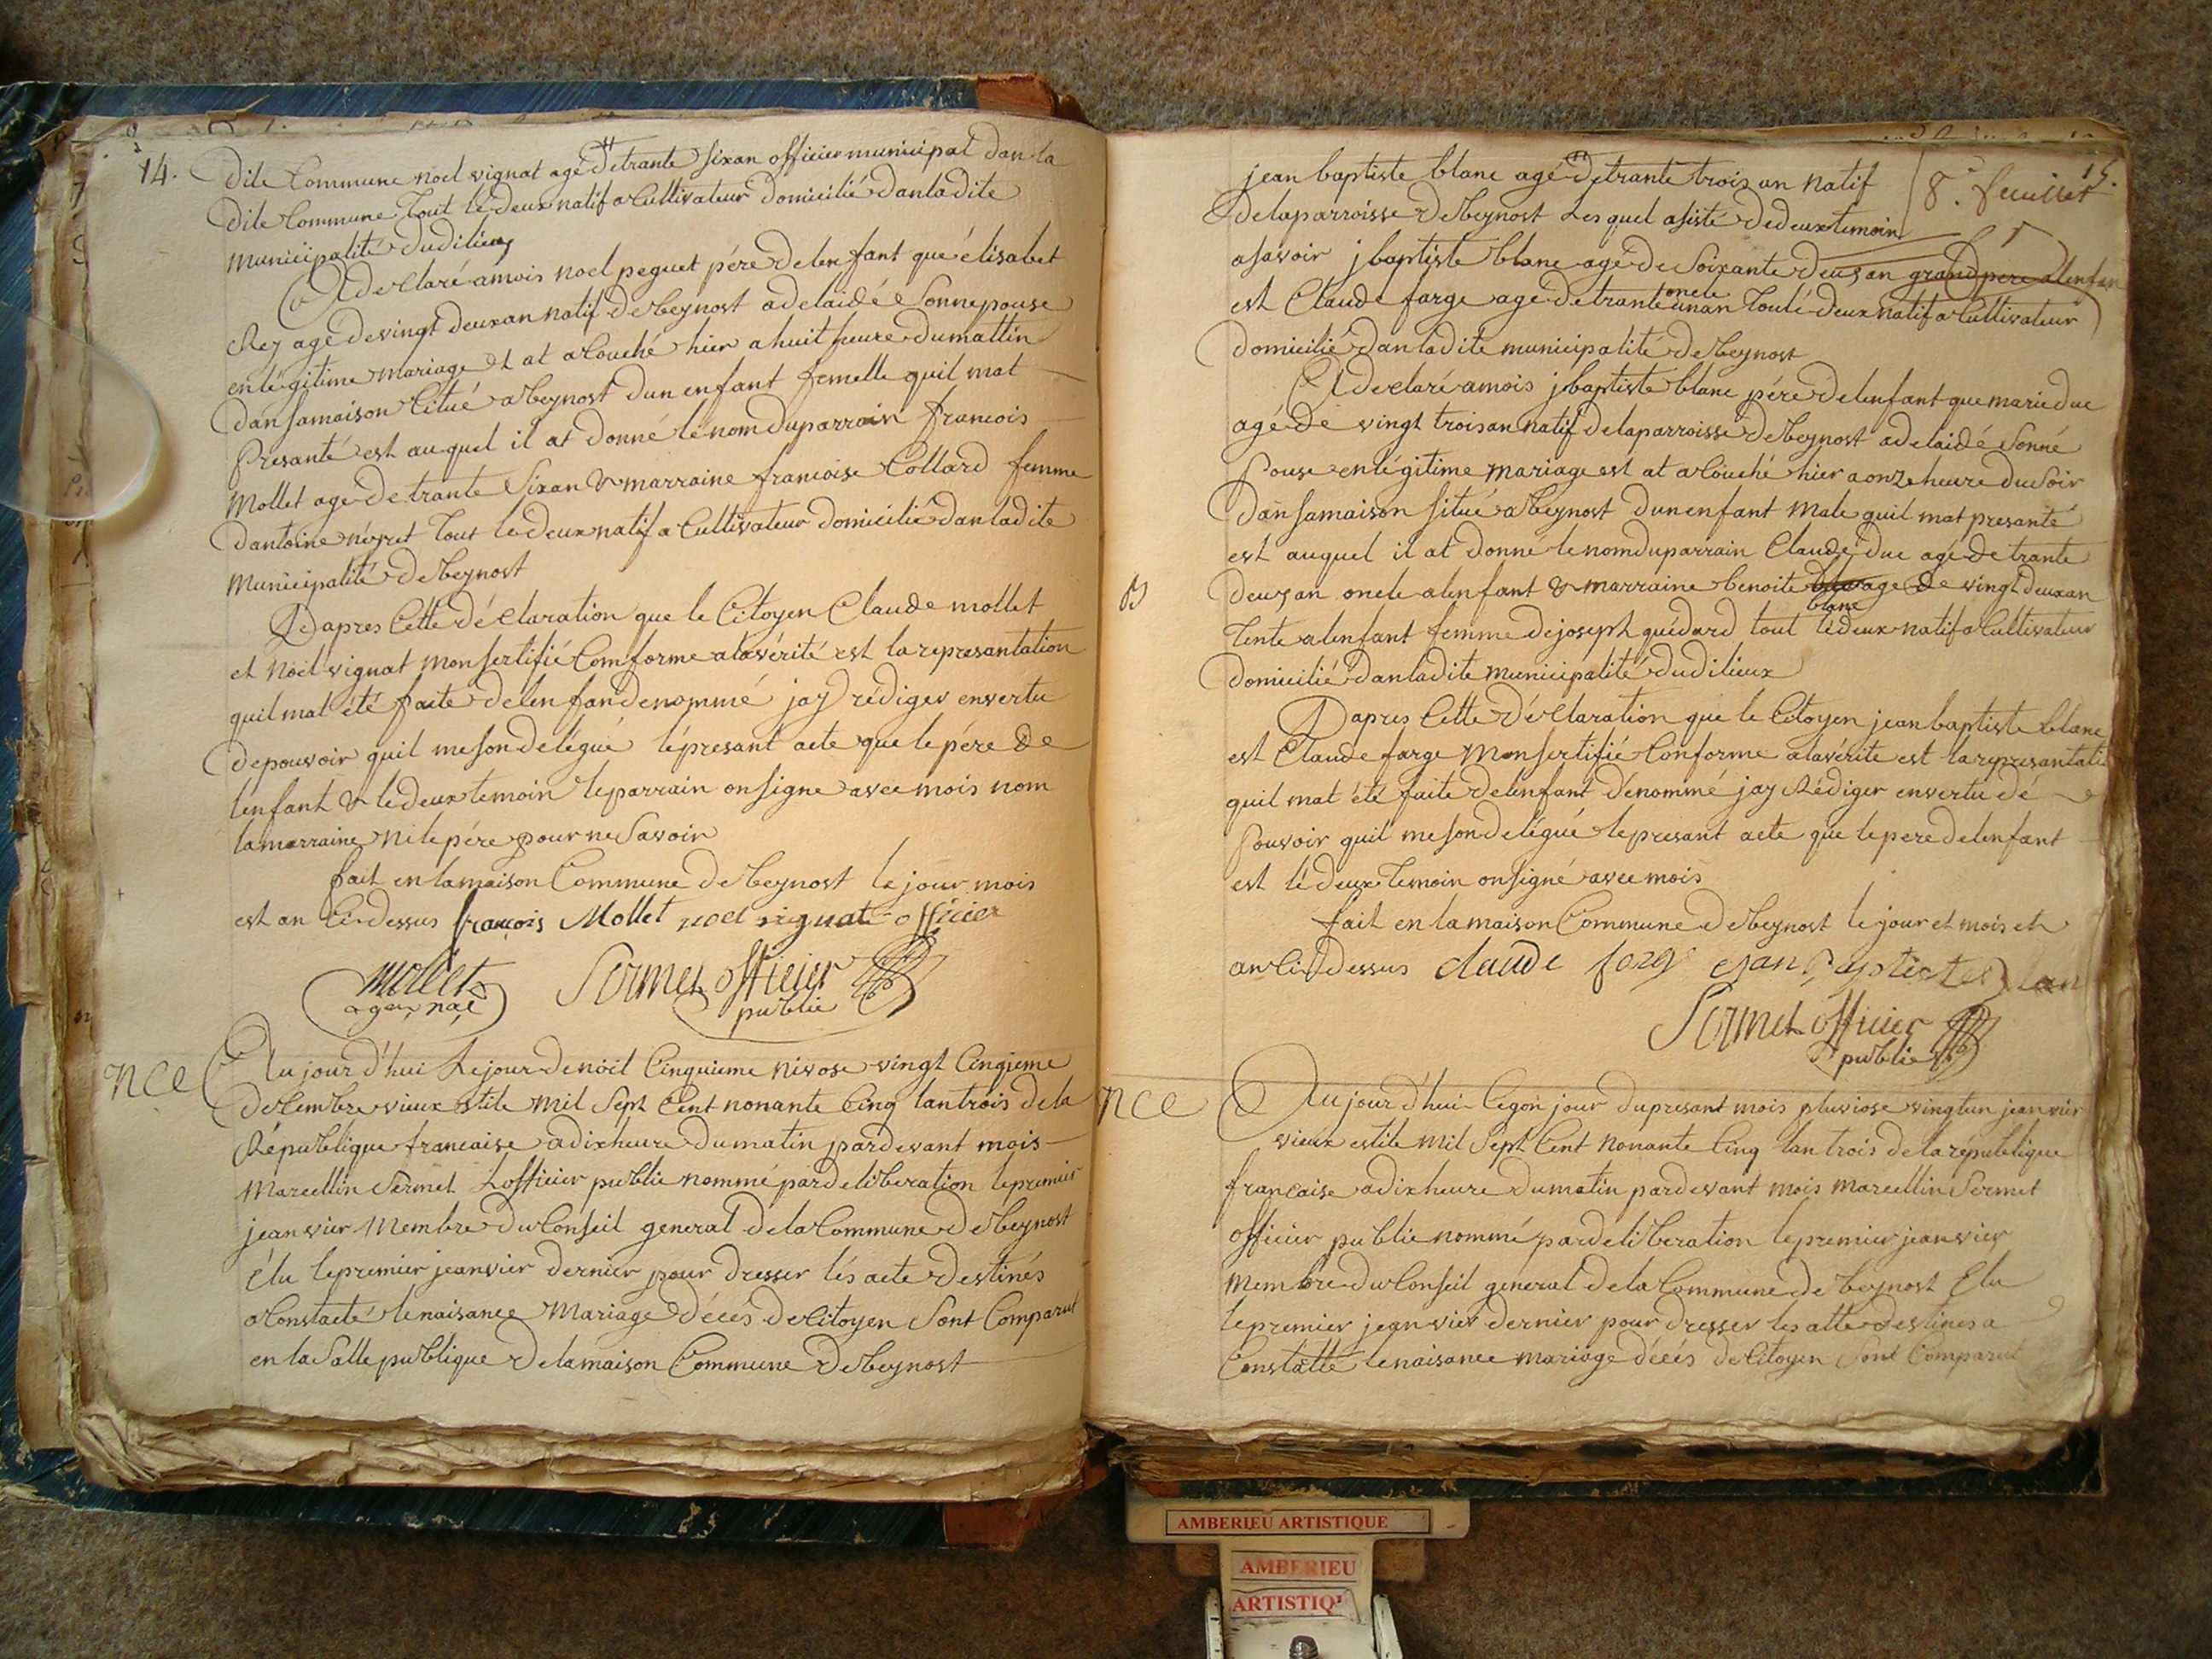 14.
dite Commune noel vignat agé detrante sixan officier municipal dan la
dite Commune tout lé deux natif a Cultivateur domicilié dan ladite
municipalité dudilieu
A declaré amois noel peguet pére delenfant que élisabet
Rey agé devingt deux an natif debeynost adelaidé Sonnepouse
enlégitime mariage et at acouché hier a huit heure dumattin
dansamaison Citué abeynost dun enfant femelle quil mat
Presanté est auquel il at donné lé nom duparrain francois
Mollet age de trante Sixan & marraine francoise Collard femme
dantoine néyret tout ledeux natif a Cultivateur domicilié dan ladite
Municipalité debeynost
Dapres Cette déclaration que le Citoyen Claude mollet
et Noel vignat mon sertifié Comforme alavérité est la represantation
quil mat été faite delenfan denommé jay rédiger envertu
depouvoir quil me son delégué lépresant acte que le pére de
lenfant & le deux temoin leparrain on signe avec mois nom
lamarraine ni le pére pour ne Savoir
fait en lamaison Commune de beynost le jour mois
est an Ci dessus françois Mollet noel vignat officier
mollet agen naë Sermet officier public
nce
Au jour d'hui Le jour de noil Cinquieme nivose vingt Cinqieme
decembre vieux stile mil Sept Cent nonante Cinq lan trois dela
République francaise adixheure dumatin pardevant mois
Marcellin Sermet Lofficier public nommé par deliberation le premier
jeanvier Membre du Conseil general de la Commune de beynost
Elu le premier jeanvier dernier pour dresser lés acte destinés
a Constacté le naisance Mariage décés de Citoyen Sont Comparut
en la Salle publique de lamaison Commune de beynost
15.
8.e feuillet
jean baptiste blanc agé de trante trois an natif
delaparroisse de beynost Les quel asisté dedeux temoin
asavoir j baptiste blanc agé de Soixante deux an grand pere alenfan
est Claude farge agé detrante un an oncle tout lé deux natif a Cultivateur
domicilié dan ladite municipalité de beynost
A declaré amois jbaptiste blanc pére delenfant que marie duc
agé de vingt troisan natif delaparroisse de beynost adelaidé Sonné
Pouse enlégitime mariage est at acouché hier a onze heure du Soir
dansamaison situé abeynost dun enfant male quil mat presanté
est auquel il at donné le nom duparrain Claude duc agé de trante
deux an oncle alenfant & marraine benoite blanc age de vingt deux an
tente alenfant femme dejoseph quédard tout lédeux natif a Cultivateur
domicilié dan ladite municipalité dudilieux
Dapres Cette déclaration que le Citoyen jean baptiste blanc
est Claude farge Mon sertifié Conforme alavérite est la represantati
quil mat été faite delenfant dénommé jay Rédiger envertu dé
Pouvoir quil me son delégué le presant acte que le pere delenfant
est lé deux temoin on signé avec mois
fait en la maison Commune de beynost le jour et mois et
an Ci dessus claude farge
Sermet officier public
nce
Au jour d'hui Cegon jour dupresant mois pluviose vingt un jeanvier
vieux estile mil Sept Cent nonante Cinq lan trois de la république
francaise adixheure dumatin pardevant mois marcellin Sermet
officier public nommé par deliberation le premier jeanvier
Membre du Conseil general de la Commune de beynost Elu
le premier jeanvier dernier pour dresser les atte destines a
Constatté le naisance mariage décés de Citoyen Sont Comparut
AMBERIEU ARTISTIQUE
AMBERIEU
ARTISTIQ'